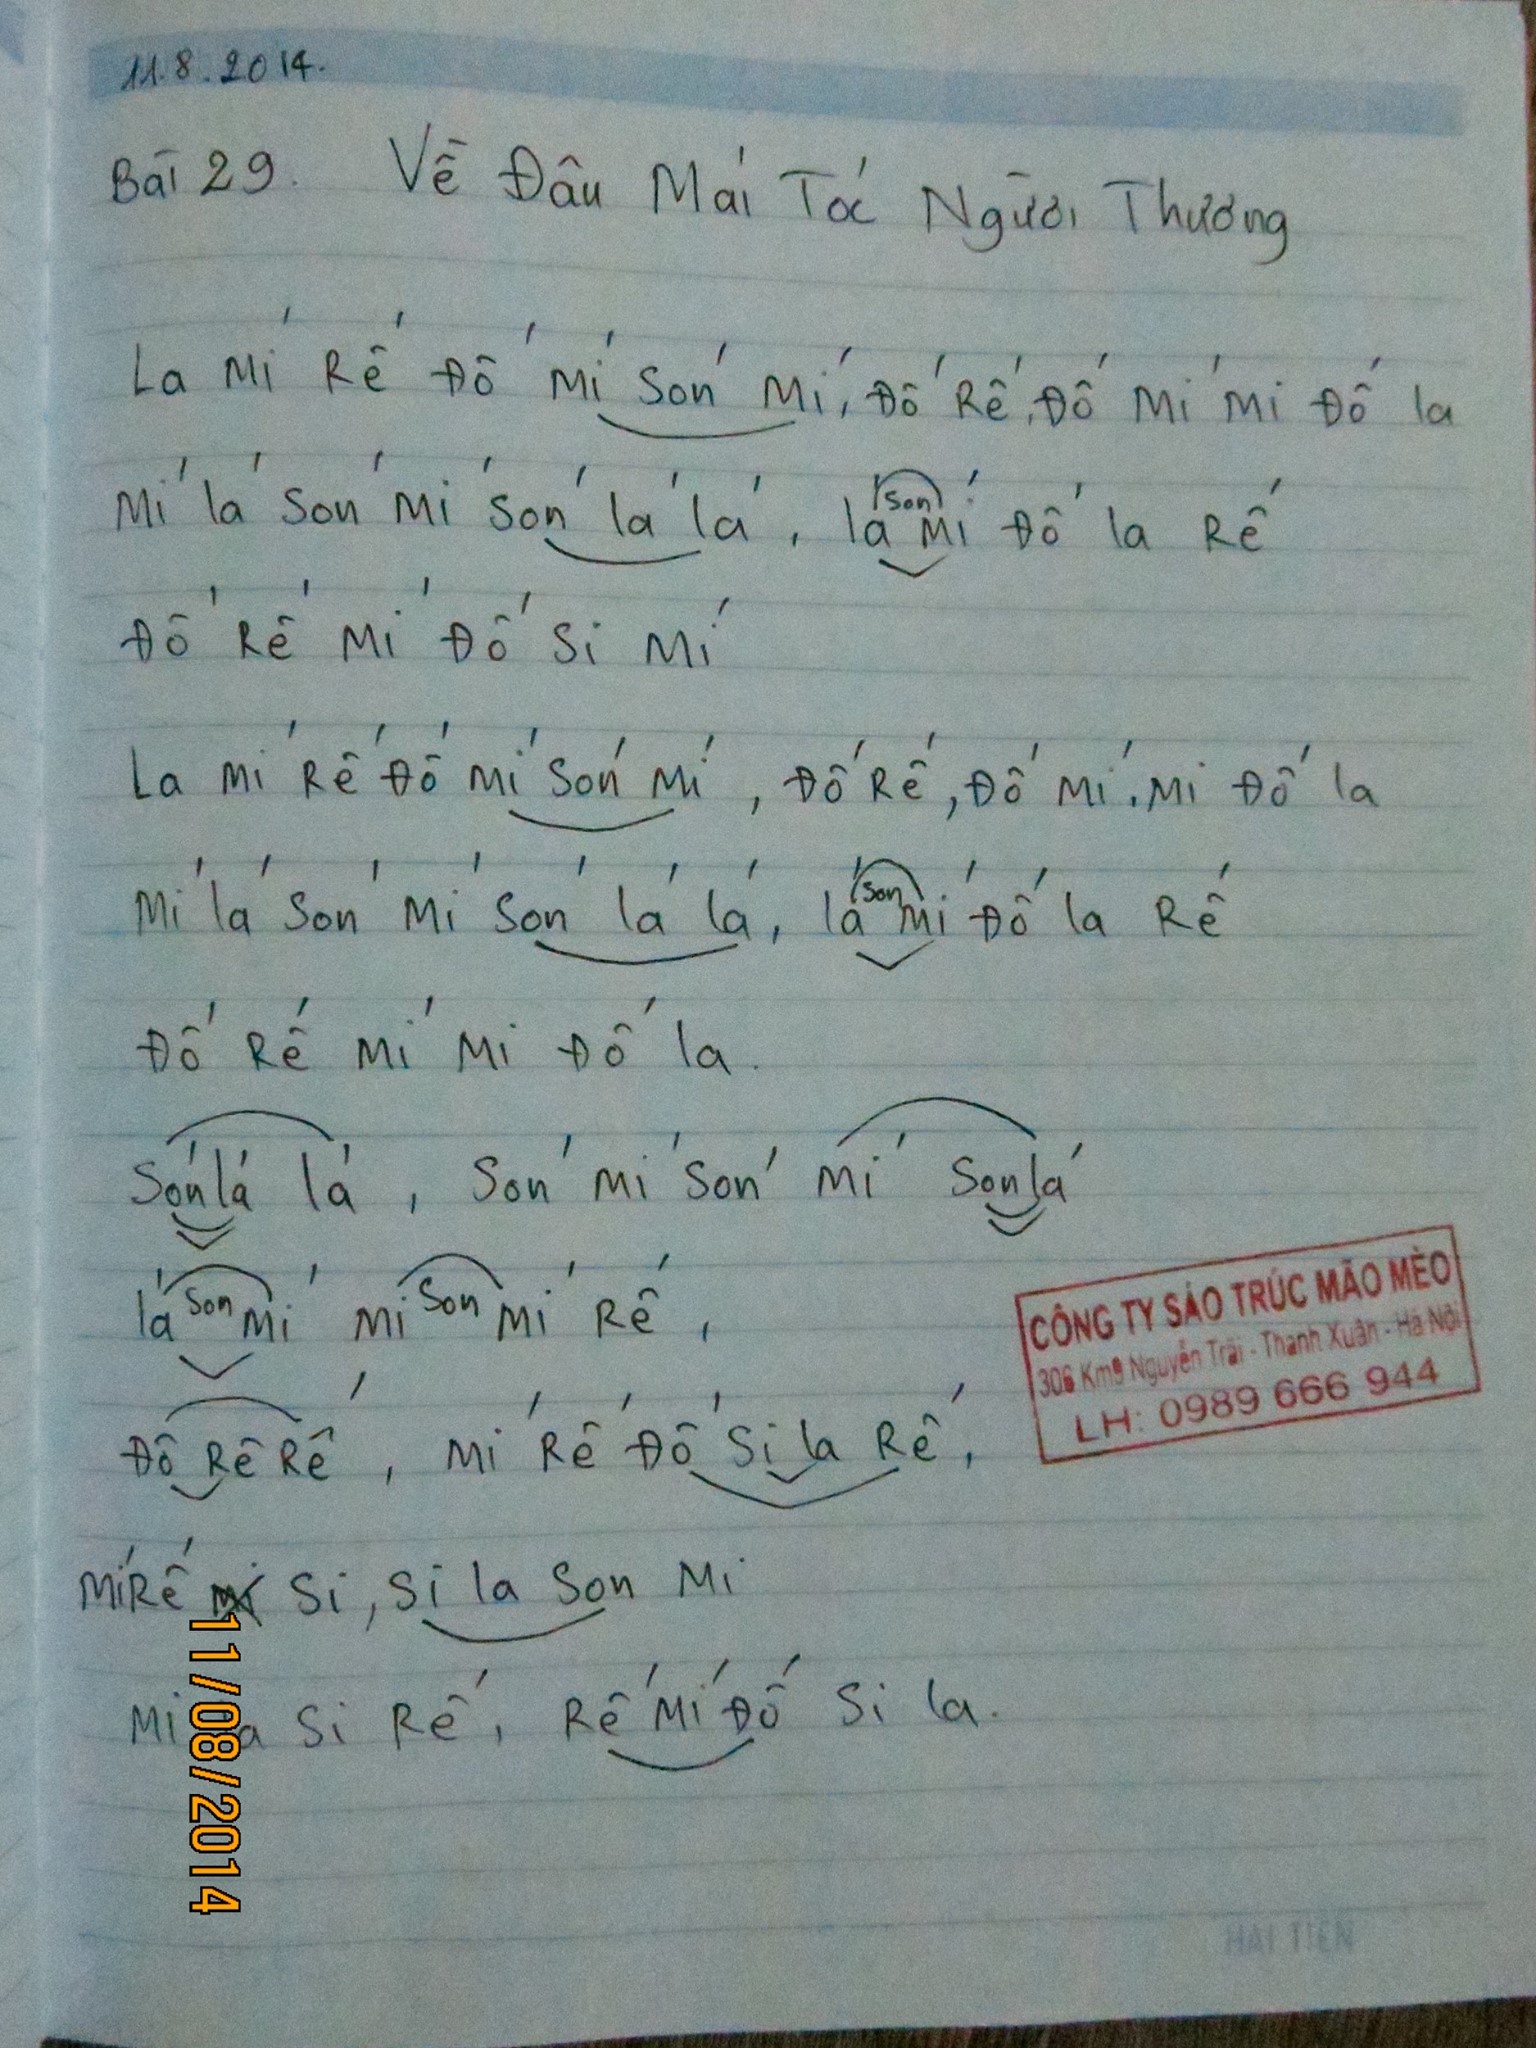 11.8.2014.
Bài 29. Về Đâu Mái Tóc Người Thương
La Mí Rế Đố Mí Són Mí, Đố Rế, Đố Mí Mi Đố la
Mí lá Són Mí Són lá lá, lá són Mí Đố la Rế
Đố Rế Mí Đố Si Mí
La Mí Rế Đố Mí Són Mí, Đố Rế, Đố Mí, Mi Đố la
Mí lá Són Mí Són lá lá, lá son Mí Đố la Rế
Đố Rế Mí Mi Đố la.
Sónlá lá, Són Mí Són Mí Sonlá
lá son Mí Mi son Mí Rế,
Đô Rê Rế, Mí Rế Đố Si la Rế,
Mí Rế Si, Si la Son Mi
Mi la Si Rế, Rế Mí Đố Si la.
CÔNG TY SÁO TRÚC MÃO MÈO
306 Km9 Nguyễn Trãi - Thanh Xuân - Hà Nội
LH: 0989 666 944
11/08/2014
HẢI TIẾN